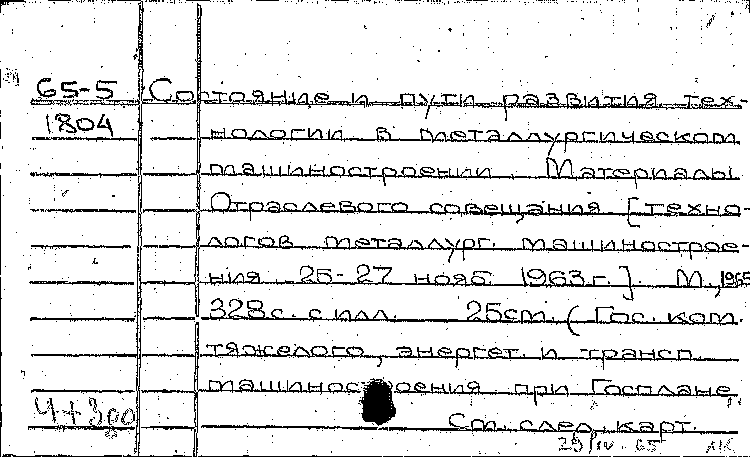 65-5 Состояние и пути развития тех-
1804 нологии в металлургическом
машиностроении. Материалы
Отраслевого совещания [техно-
логов металлург. машинострое-
ния 25-27 нояб. 1963 г.]. М., 1965
328 с. с илл. 25 cm. (Гос. ком.
тяжелого, энергет. и трансп.
машиностроения при Госплане
Ст. след. карт.